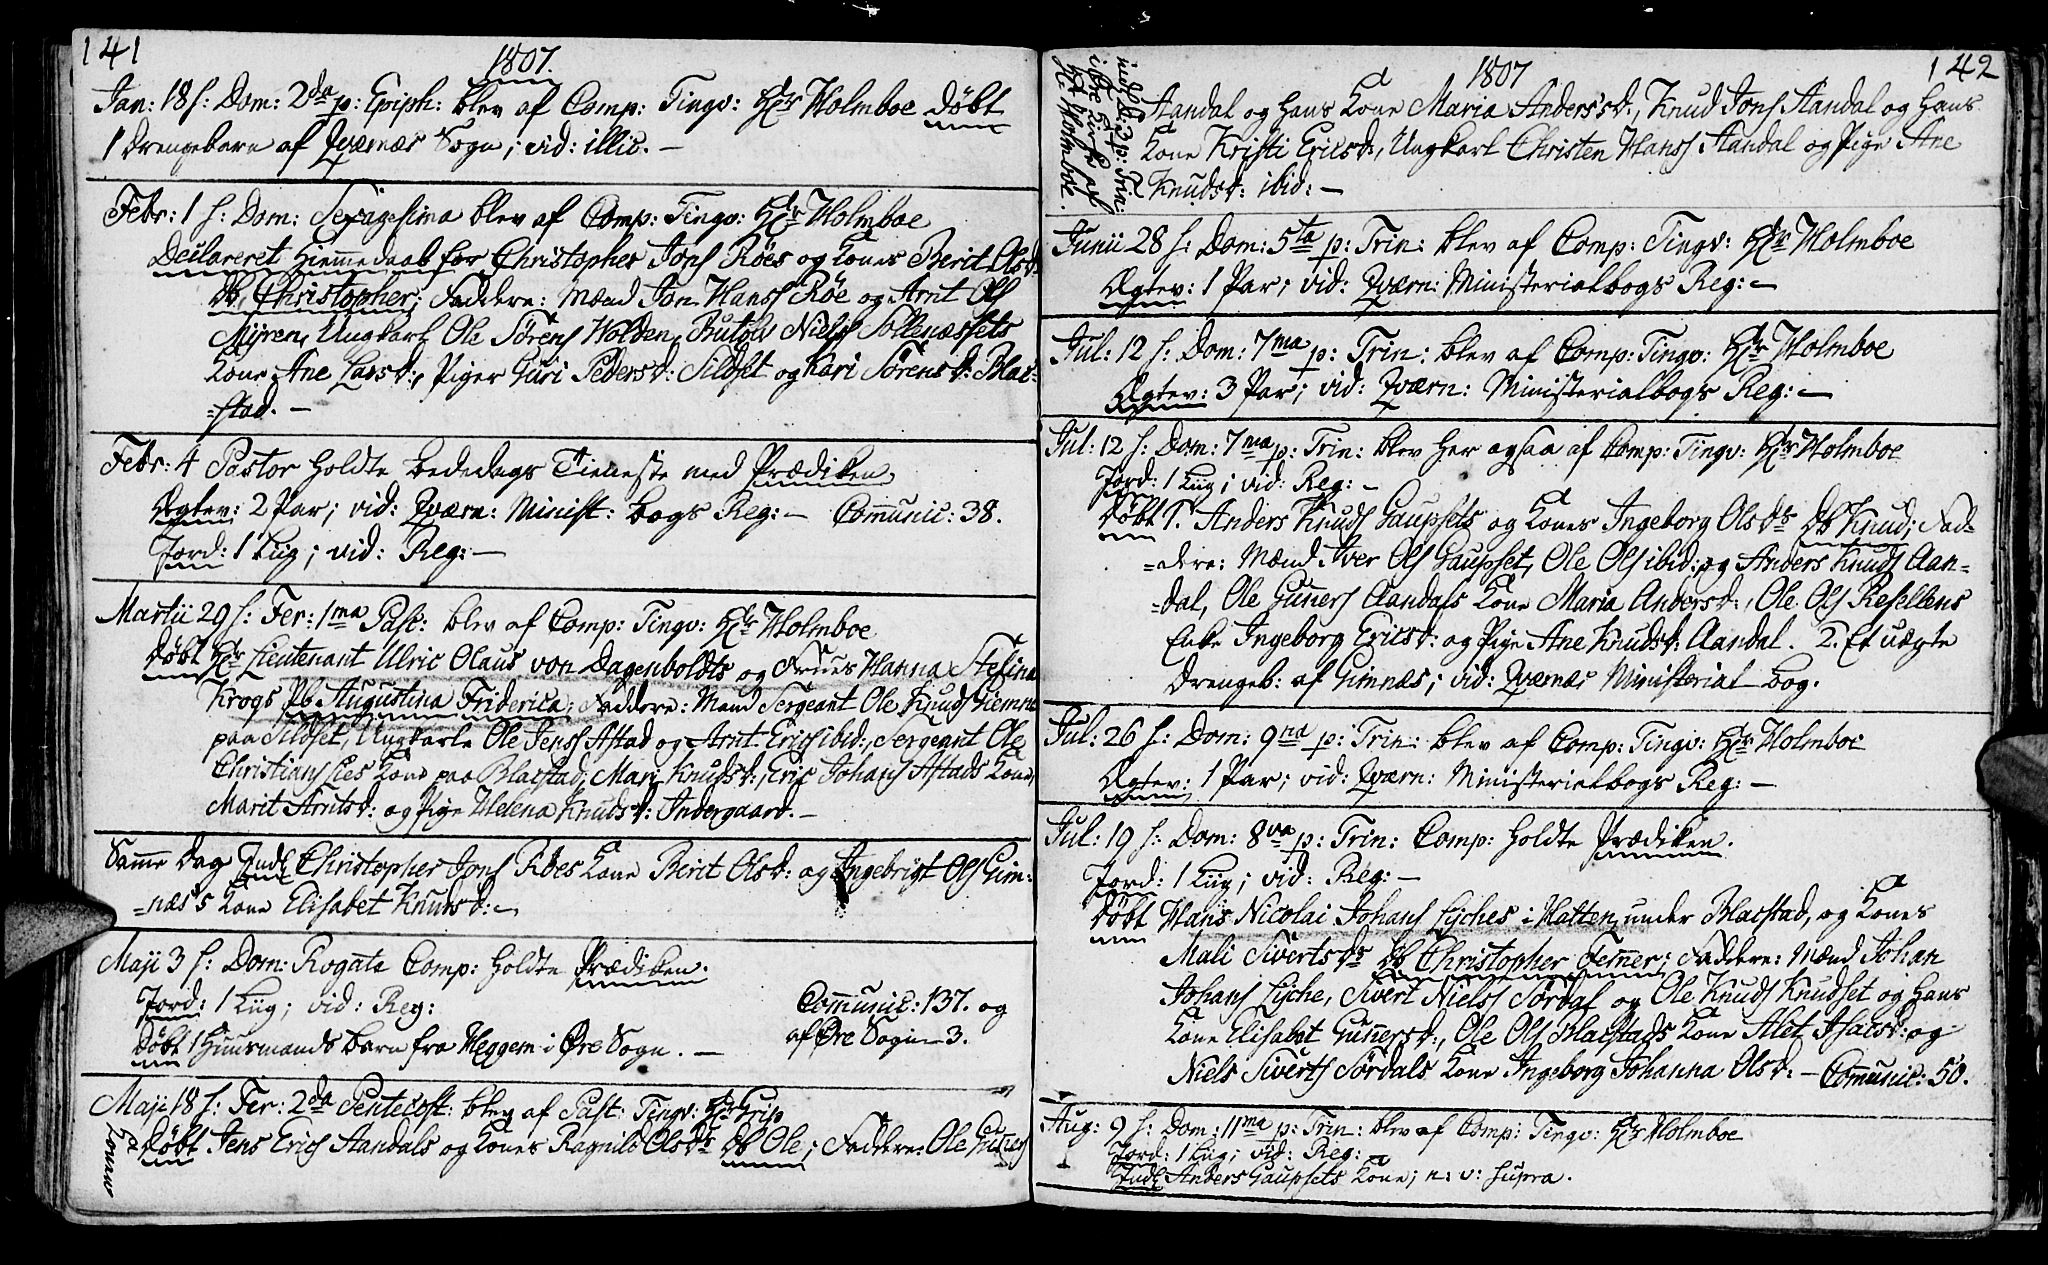 141
1807.
Jan: 18 s: Dom: 2da p: Epiph: blev af Comp: Tingv: Hr Holmboe døbt
1 drengebarn af Qværnæs Sogn; vid: illic. —
Febr: 1 s: Dom: Sexagesima blev af Comp: Tingv: Hr Holmboe
Declareret Hiemmedaab for Christopher Jons Röes og Kones Berit Olsd:
Db. Christopher; Faddere: Mænd Jon Hanss Röe og Arnt Ols
Myren, Ungkarl Ole Sörens Holden, Brutolv Niels Sollenæssets
Kone Ane Larsd:, Piger Guri Pedersd: Sildset og Kari Sörensd: Blac-
=stad. —
Febr: 4 Pastor holdte bededags Tieneste med Prædiken
Ægtev: 2 Par; vid: Qværn: Minist: bogs Reg: — Com̅unic: 38.
Jord: 1 Liig; vid: Reg: —
Martii 29 s: Fer: 1ma Pasc: blev af Comp: Tingv: Hr Holmboe
døbt Hr Lieutenant Ulric Olaus von Dagenboldts og Frues Hanna Stesina
Krogs Pb Augustina Friderica; Faddere: Mænd Sergeant Ole Knuds Hiemne
paa Sildset, Ungkarle Ole Jenss Astad og Arnt Erics ibid:, Sergeant Ole
Christians Lies Kone paa Blacstad, Mari Knudsd:, Eric Johans Astads Kone,
Marit Arntsd: og Pige Helena Knudsd: Indergaard. —
Samme Dag Indl Christopher Jons Röes Kone Berit Olsd: og Ingebrigt Ols Gim-
=næs's Kone Elisabet Knudsd: —
Maji 3 s: Dom: Rogate Comp: holdte Prædiken.
Jord: 1 Liig; vid: Reg: Com̅unic: 137. og
døbt 1 Huusmands barn fra Heggem i Øre Sogn. — af Øre Sogn — 3.
Maji 18 s: Fer: 2da Pentecost: blev af Past: Tingv: Hr Grip
døbt Jens Erics Aandals og Kones Ragnild Olsdr Db Ole; Faddere: Ole Guners
1807
142
Aandal og hans Kone Maria Anders'sd:, Knud Jons Aandal og hans
Kone Kristi Ericsd:, Ungkarl Christen Hanss Aandal og Pige Ane
Knudsd: ibid: —
Junii 28 s: Dom: 5ta p: Trin: blev af Comp: Tingv: Hr Holmboe
Ægtev: 1 Par; vid: Qværn: Ministerialbogs Reg: —
Jul: 12 s: Dom: 7ma p: Trin: blev af Comp: Tingv: Hr Holmboe
Ægtev: 3 Par; vid: Qværn: Ministerialbogs Reg: —
Jul: 12 s: Dom: 7ma p: Trin: blev her ogsaa af Comp: Tingv: Hr Holmboe
Jord: 1 Liig; vid: Reg: —
døbt 1. Anders Knuds Gaupsets og Kones Ingeborg Olsdr Db Knud; Fad-
=dere: Mænd Iver Ols Gaupset, Ole Ols ibid: og Anders Knuds Aan-
=dal, Ole Guners Aandals Kone Maria Andersd:, Ole Ols Resellens
Enke Ingeborg Ericsd: og Pige Ane Knudsd: Aandal. 2. Et uægte
drengeb: af Gimnæs; vid: Qvernæs Ministerial bog.
Jul: 26 s: Dom: 9na p: Trin: blev af Comp: Tingv: Hr Holmboe
Ægtev: 1 Par; vid: Qværn: Ministerialbogs Reg: —
Jul: 19 s: Dom: 8va p: Trin: Comp: holdte Prædiken.
Jord: 1 Liig; vid: Reg: —
døbt Hans Nicolai Johans Lyches i Hatten under Blacstad, og Kones
Mali Sivertsdr Db Christopher Femer; Faddere: Mænd Johan
Johans Lyche, Sivert Niels Sördal og Ole Knuds Knudset og hans
Kone Elisabet Gunersd:, Ole Ols Blacstads Kone Alet Isacsd: og
Niels Siverts Sördals Kone Ingeborg Johanna Olsd: — Com̅unic: 50.
Aug: 9 s: Dom: 11ma p: Trin: blev af Comp: Tingv: Hr Holmboe
Jord: 1 Liig; vid: Reg: —
Indl Anders Gaupsets Kone; n: v: supra.